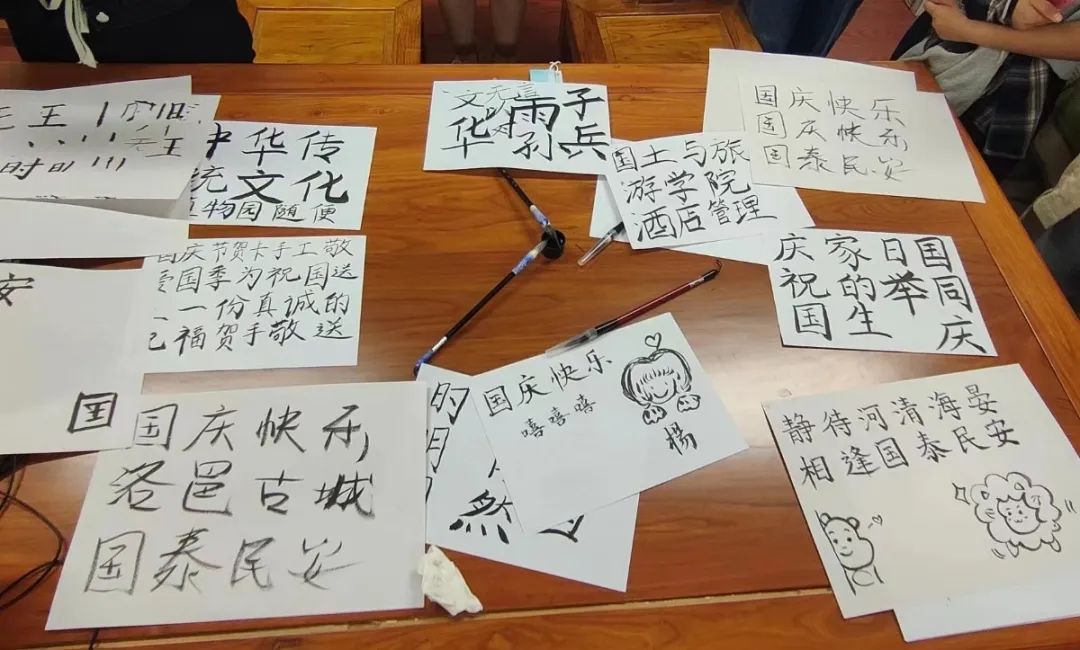 王
时
中华传
统文化
植物园随便
国庆节贺卡手工敬
国季为祝国送
一份真诚的
福贺手敬送
安
国
国庆快乐
洛邑古城
国泰民安
文无言
雨子
华孙兵
国土与旅
游学院
酒店管理
国庆快乐
国庆快乐
国泰民安
庆家日国
祝的举同
国生庆
的
明
然
国庆快乐
嘻嘻嘻
楊
静待河清海晏
相逢国泰民安